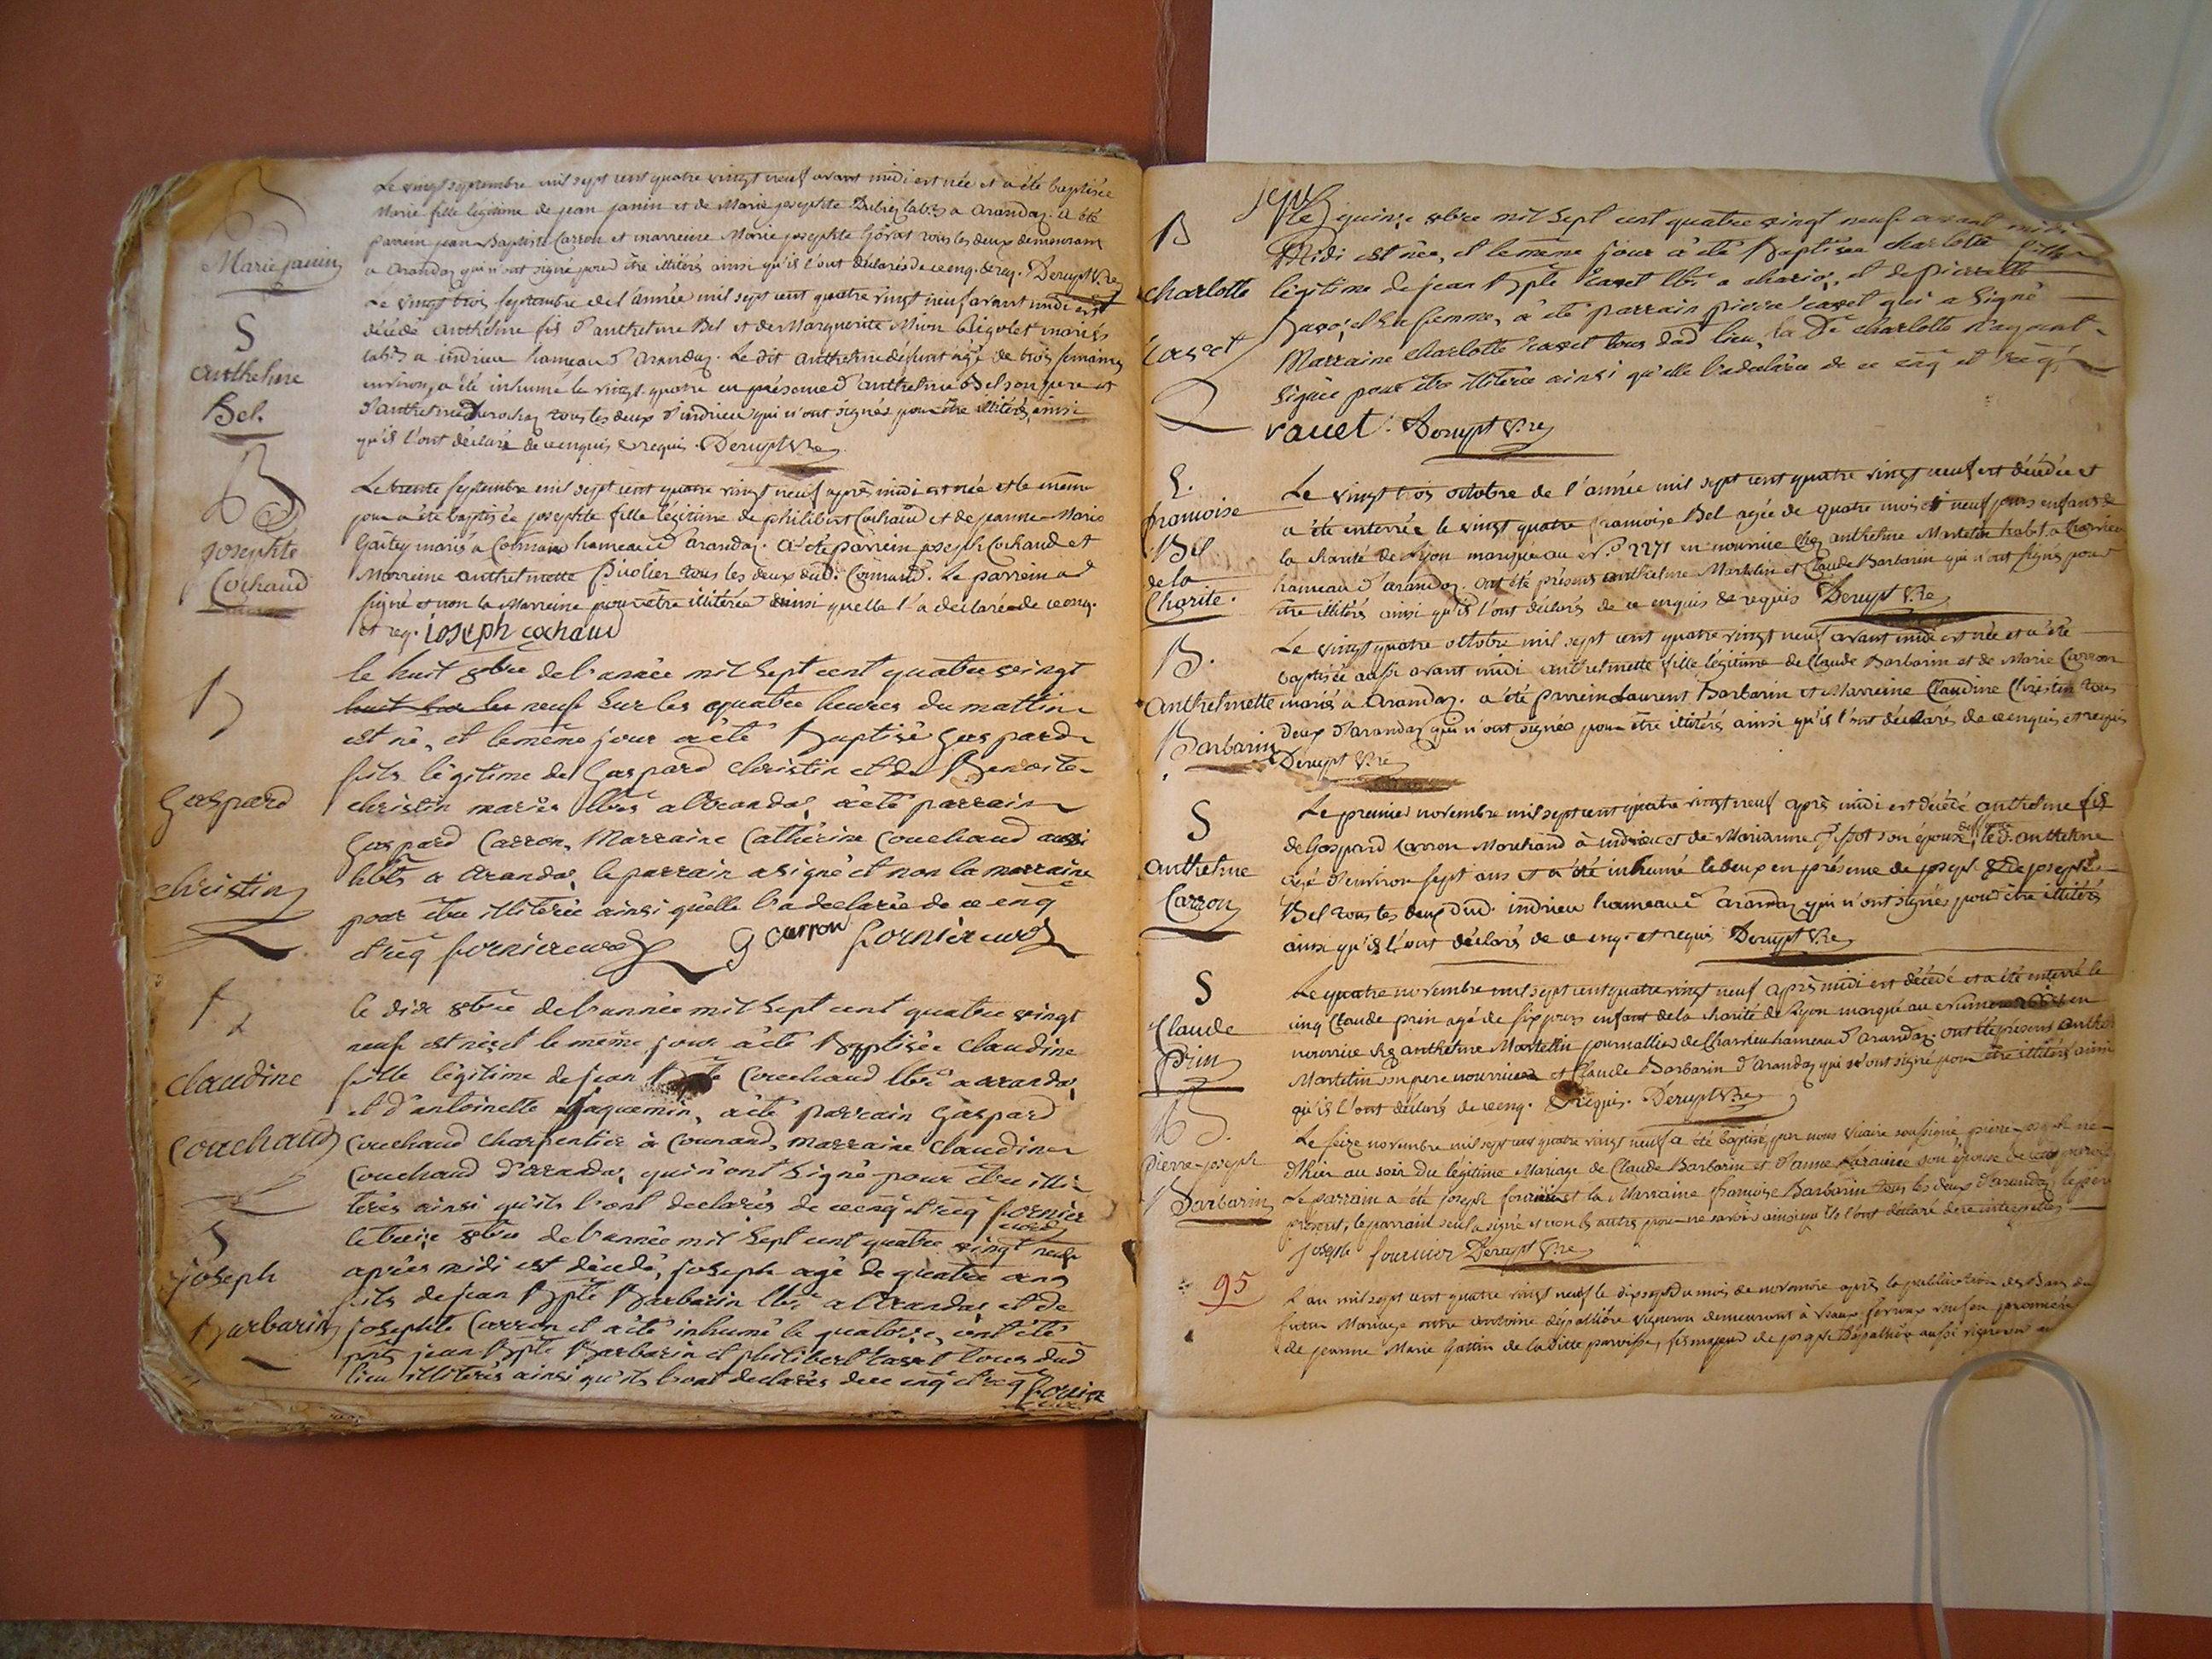 Le vingt septembre mil sept cent quatre vingt neuf avant midi est née et a été baptisée
Marie fille légitime de jean janin et de Marie josephte Dubiez habts a arandaz. a été
parrein jean Baptiste Carron et marreine Marie josephte tous les deux demeurant
a arandaz qui n'ont signé pour être illitérés ainsi qu'ils l'ont déclarés de ce enq. & req. Derupt Vre
Marie janin
Le vingt trois septembre de l'année mil sept cent quatre vingt neuf avant midi est
S
décédé anthelme fils d'anthelme Bel et de Marguerite Mion Brigolet mariés
habts a indrieu hameau d'arandaz. Le dit anthelme défunt agé de trois semaines
anthelme
environ, a été inhumé le vingt quatre en présence d'anthelme Bel son pere et
Bel.
d'anthelme tous les deux d'indrieu qui n'ont signés pour être illitérés, ainsi
qu'ils l'ont déclaré de ce enquis & requis. Derupt Vre
B
Le trente septembre mil sept cent quatre vingt neuf après midi est née et le même
jour a été baptisée josephte fille légitime de philibert Cochaud et de jeanne Marie
josephte
Gaitey mariés a Counand hameau d'arandaz. a été parrein joseph Cochaud et
Cochaud
Marreine anthelmette Pivolier tous les deux dud. Counand. Le parrein a
signé et non la Marreine pour être illitérée ainsi quelle l'a déclarée de ce enq.
et req. joseph cochaud
B
le huit 8bre de l'année mil sept cent quatre vingt
huit sur les neuf sur les quatre heures du mattin
est né, et le même jour a été Baptisé Gaspard
fils légitime de Gaspard christin et de Benoite
Gaspard
christin mariés hbts a Arandas, a été parrain
Gaspard Carron, Marraine Catherine Couchaud aussi
christin
hbts a arandas, le parrain a signé et non la marraine
pour être illiterée ainsi qu'elle l'a declarée de ce enq
et req fornier curé G carron fornier curé
B
le dix 8bre de l'année mil sept cent quatre vingt
neuf est née, et le même jour a été Baptisée claudine
claudine
fille légitime de jean Bpte Couchaud hbt a arandas,
et d'antoinette jaquemin, a été parrain Gaspard
couchaud
Couchaud charpentier à Counand, marraine claudine
Couchaud d'arandas, qui n'ont signé pour être illi-
terés ainsi qu'ils l'ont declarés de ce enq et req fornier
curé
S
le treize 8bre de l'année mil sept cent quatre vingt neuf
joseph
après midi est décédé, joseph agé de quatre ans
fils de jean Bpte Barbarin hbt a Arandas, et de
Barbarin
josephte Carron et a été inhumé le quatorze, ont été
pnts jean Bpte Barbarin et philibert Cavet tous dud
lieu illiterés ainsi qu'ils l'ont declarés de ce enq et req fornier
curé
B
le quinze 8bre mil sept cent quatre vingt neuf avant midi
Midi est née, et le même jour a été Baptisée charlotte fille
charlotte
légitime de jean Bpte Cavet hbt a chario, et de pierrette
sa femme, a été parrain pierre Cavet qui a signé
Cavet
Marraine charlotte Cavet tous dud lieu, la De charlotte n'ayant
signée pour être illiterée ainsi qu'elle l'a declarée de ce enq et req
cauet. Derupt Vre
S.
Le vingt trois octobre de l'année mil sept cent quatre vingt neuf est décédée et
francoise
a été enterrée le vingt quatre francoise Bel agée de quatre mois et neuf jours enfant de
Bel
la charité de Lyon marquée au No. 2271 en nourrice chez anthelme Martelin habt. a Charvieu
de la
hameau d'arandaz. ont été présens anthelme Martelin et Claude Barbarin qui n'ont signés pour
Charite.
être illitérés ainsi qu'ils l'ont déclarés de ce enquis & requis Derupt Vre
B.
Le vingt quatre octobre mil sept cent quatre vingt neuf avant midi est née et a été
baptisée aussi avant midi anthelmette fille légitime de Claude Barbarin et de Marie Carron
anthelmette
mariés a Arandaz. a été parrein Laurent Barbarin et Marreine Claudine Christin tous
Barbarin
deux d'arandaz qui n'ont signés pour être illitérés ainsi qu'ils l'ont déclarés de ce enquis et requis
Derupt Vre
S
Le premier novembre mil sept cent quatre vingt neuf après midi est décédé anthelme fils
anthelme
de Gaspard Carron Marchand à indrieu et de Marianne son épouse deffunte, led. anthelme
Carron
agé d'environ sept ans et a été inhumé le deux en présence de joseph & de joseph
Bel tous les deux dud. indrieu hameau d'arandaz qui n'ont signés pour être illitérés
ainsi qu'ils l'ont déclarés de ce enq. et requis Derupt Vre
S
Le quatre novembre mil sept cent quatre vingt neuf après midi est décédé et a été enterré le
Claude
cinq Claude prin agé de six jours enfant de la charité de Lyon marqué au numero en
prin
nourrice chez anthelme Martellin journallier de Charvieu hameau d'arandaz. ont été présens anthel
Martelin son pere nourricier et Claude Barbarin d'Arandaz qui n'ont signé pour être illitérés ainsi
qu'ils l'ont déclarés de ce enq. & requis. Derupt Vre
B.
Le seize novembre mil sept cent quatre vingt neuf a été baptisé par nous Vicaire soussigné, pierre-joseph né
pierre-joseph
d'hier au soir du légitime Mariage de Claude Barbarin et d'anne son épouse de cette paroisse
Barbarin
Le parrain a été joseph fournier et la Marraine francoise Barbarin tous les deux d'arandaz, le pere
présent, le parrain seul a signé et non les autres pour ne savoir ainsi qu'ils l'ont déclaré de ce interpellés
joseph fournier Derupt Vre
95
L'an mil sept cent quatre vingt neuf le dix sept du mois de novembre après la publication des Bans du
futur Mariage entre antoine Dépallière vigneron demeurant à Vaux fevroux veuf en première
de jeanne Marie Gattin de la Ditte paroisse, fils majeur de joseph Dépallière aussi vigneron